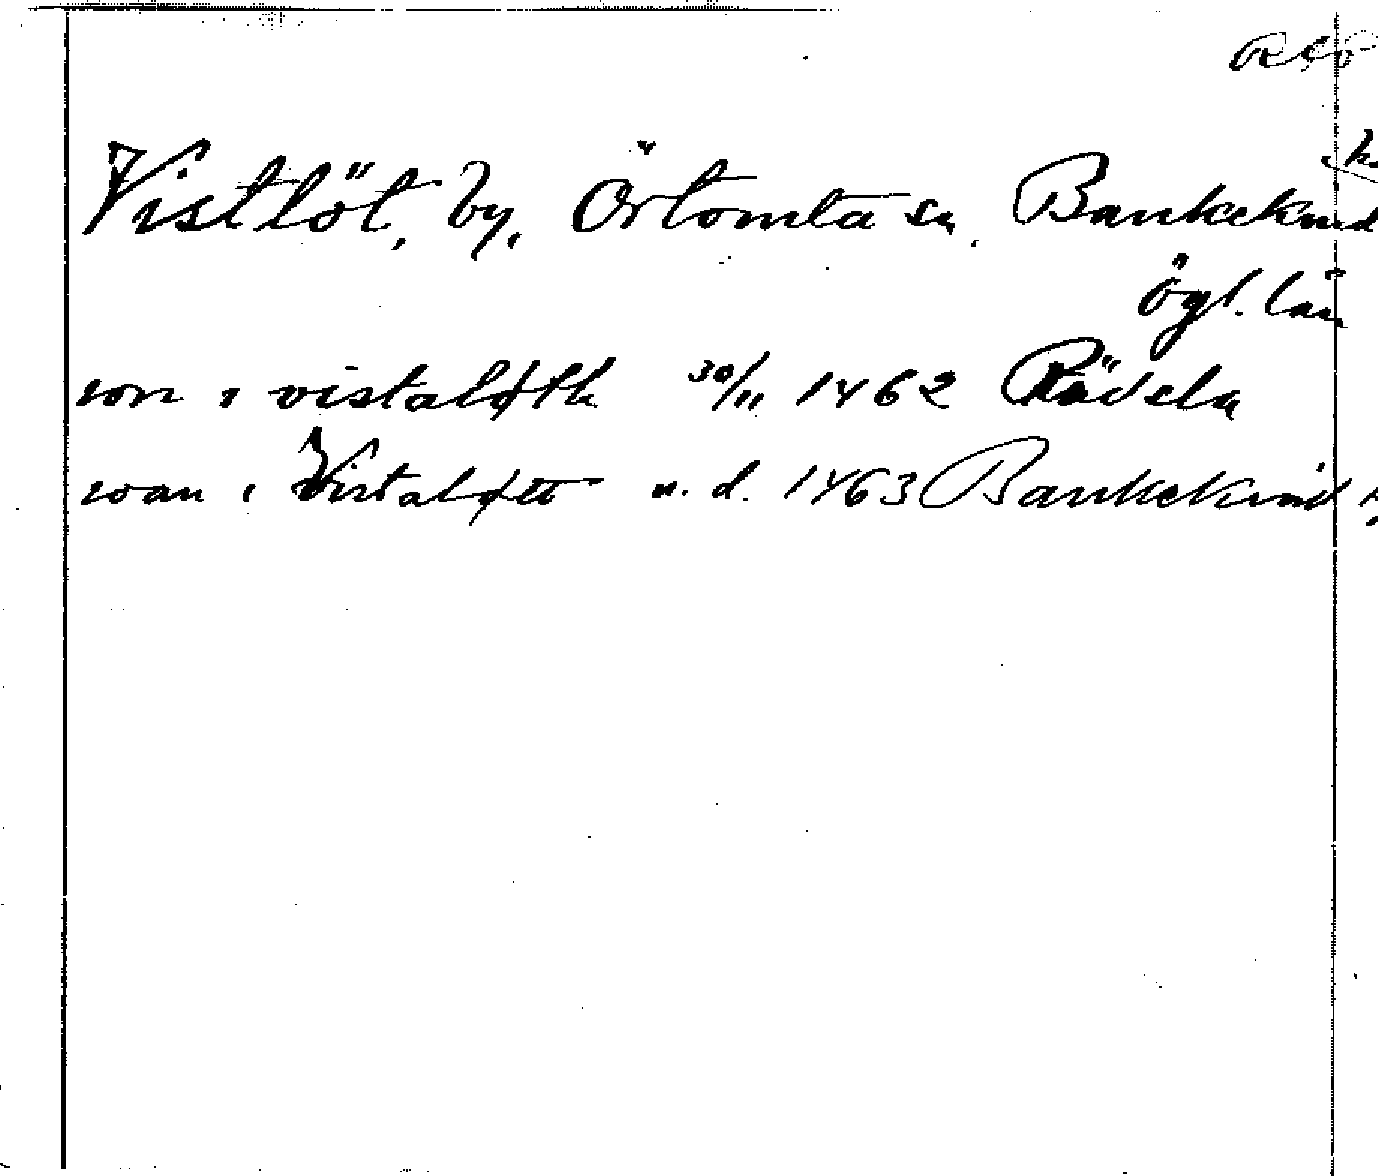 Vistlöt, by, Örtomta sn, Bankekind
Ögl. län
son i vistaløth 30/11 1462 Rödela
soan i Vistaløtt u. d. 1463 Bankekind